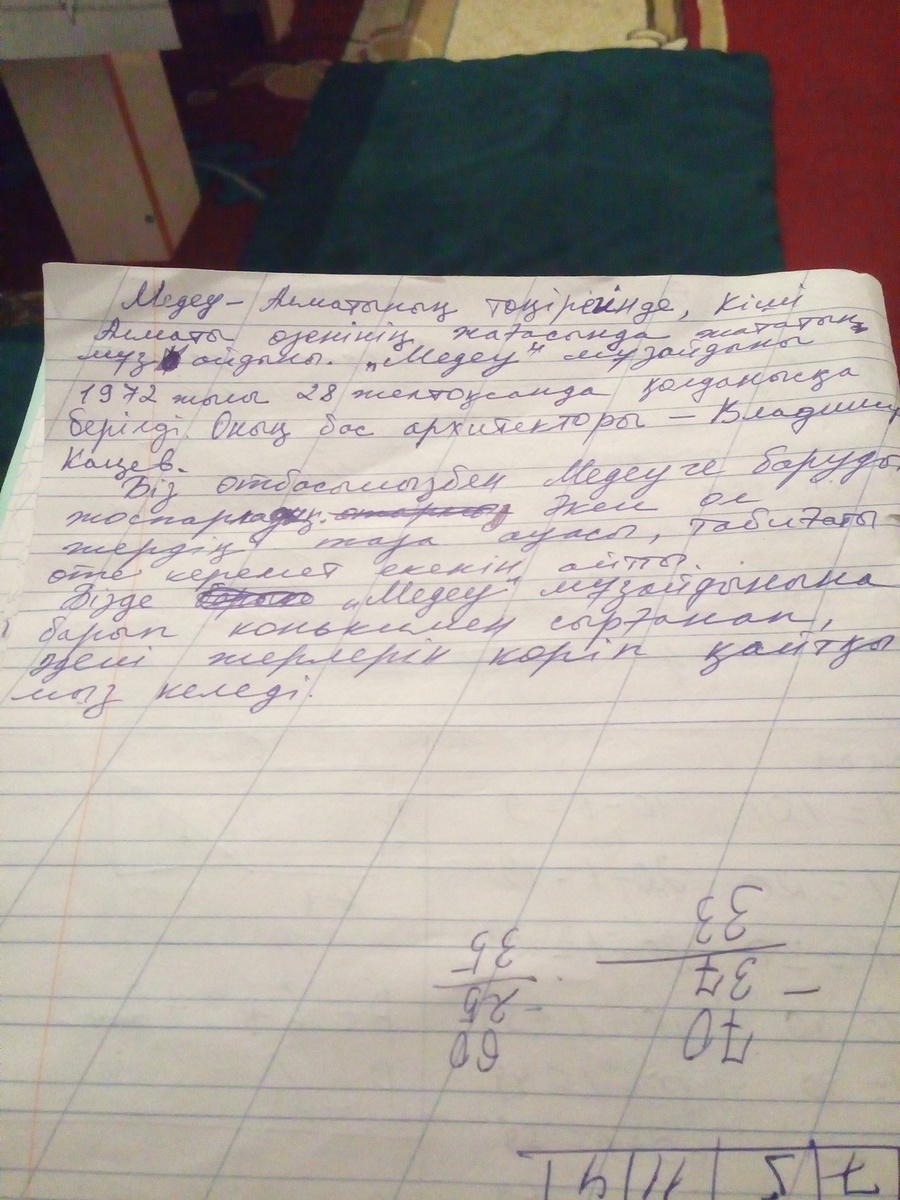 Медеу – Алматының төңірегінде, Кіші
Алматы өзенінің жағасында жататын
мұз айдыны. "Медеу" мұзайдыны
1972 жылы 28 желтоқсанда қолданысқа
берілді. Оның бас архитекторы – Владимир
Кацев.
Біз отбасымызбен Медеуге баруды
жоспарладық. Әкем ол
жердің таза ауасы, табиғаты
өте керемет екенін айтты.
Бізде "Медеу" мұзайдынына
барып конькимен сырғанап,
әдемі жерлерін көріп қайтқы
мыз келеді.
70
- 37
33
60
- 25
35
7
5
11
4